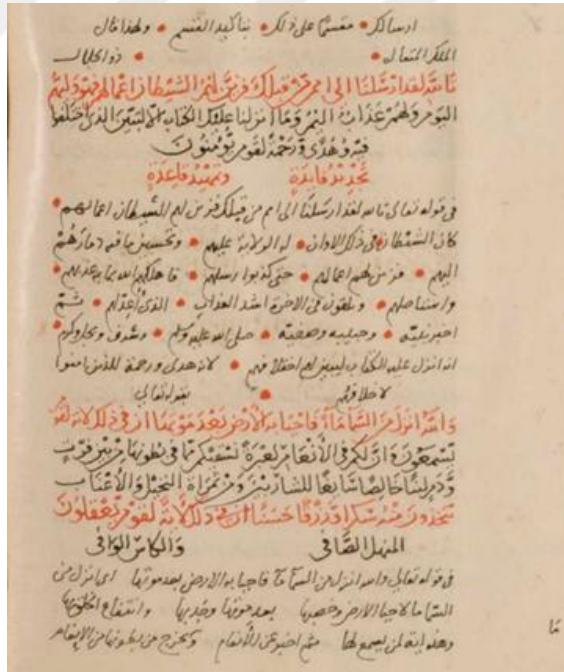 ارسالك • مقسما على ذلك • بتأكيد القسم • ولهذا قال
الملك المتعال • ذو الجلال •
تالله لقد ارسلنا الى امم من قبلك فزين لهم الشيطان اعمالهم فهو وليهم
اليوم ولهم عذاب اليم وما انزلنا عليك الكتاب الا لتبين الذي اختلفوا
فيه وهدى ورحمة لقوم يؤمنون
تجديد فايدة وتمهيد قاعدة
في قوله تعالى تالله لقد ارسلنا الى امم من قبلك فزين لهم الشيطان اعمالهم •
كان الشيطان • في ذلك الاوان • له الولاية عليهم • وتحسين ما فيه دمارهم
اليهم • فزين لهم اعمالهم • حتى كذبوا رسلهم • فاهلكهم الله بما يوعدهم •
واستاصلهم • ويلقون في الاخرة اشد العذاب • الذي أعد لهم • ثم
اخبر نبيه • وحبيبه وصفيه • صلى الله عليه وسلم • وشرف وكرم •
انه انزل عليه الكتاب ليبين لهم اختلافهم • لانه هدى ورحمة للذين امنوا
لاخلاقهم • بقوله تعالى
والله انزل من السماء ماء فاحيا به الارض بعد موتها ان في ذلك لاية لقوم
يسمعون وان لكم في الأنعام لعبرة نسقيكم مما في بطونها من بين فرث
ودم لبنا خالصا سائغا للشاربين ومن ثمرات النخيل والأعناب
تتخذون منه سكرا ورزقا حسنا ان في ذلك لاية لقوم يعقلون
المنهل الصافي والكاس الوافي
في قوله تعالى والله انزل من السماء ماء فاحيا به الارض بعد موتها اى انزل من
السما ما لاحيا الارض وخصبها بعد موتها وجدبها وانتفاع الخلق بها
وهذه اية لمن يسمع لها ثم اخبر عن الأنعام وتخرج من بطونها من الإنعام
ما